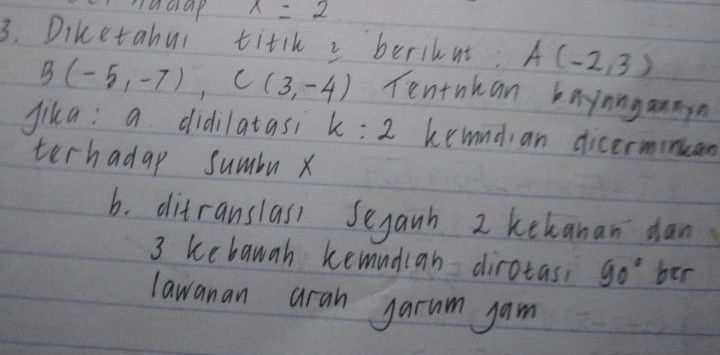 terhadap x = 2
3. Diketahui titik 2 berikut : A (-2,3)
B (-5,-7), C (3,-4) Tentukan bayangannya
jika : a didilatasi k : 2 kemudian dicerminkan
terhadap sumbu x
b. ditranslasi sejauh 2 kekanan dan
3 kebawah kemudian dirotasi 90° ber
lawanan arah jarum jam